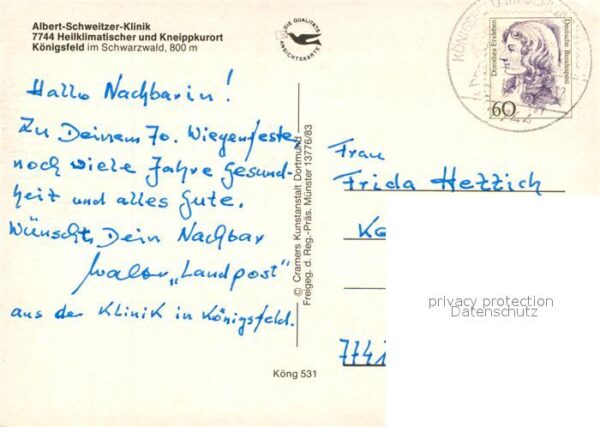 Albert-Schweitzer-Klinik
7744 Heilklimatischer und Kneippkurort
Königsfeld im Schwarzwald, 800 m
DIE QUALITÄTS
ANSICHTSKARTE
Dorothea Erxleben
Deutsche Bundespost
60
Hallo Nachbarin!
Zu Deinem 70. Wiegenfeste
noch viele Jahre Gesund-
heit und alles Gute.
Wünscht Dein Nachbar
Walter "Landpost"
aus der Klinik in Königsfeld.
© Cramers Kunstanstalt Dortmund
Freigeg. d. Reg.-Präs. Münster 13776/83
Köng 531
Frau
Frida Hettich
774
privacy protection
Datenschutz